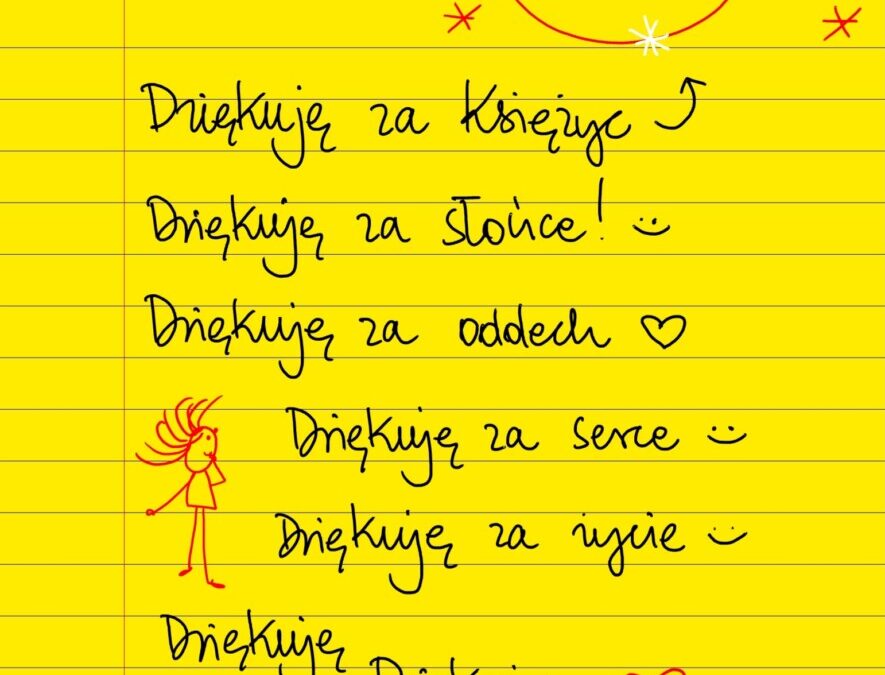 Dziękuję za Księżyc
Dziękuję za słońce! :)
Dziękuję za oddech ♡
Dziękuję za serce :)
Dziękuję za życie :)
Dziękuję